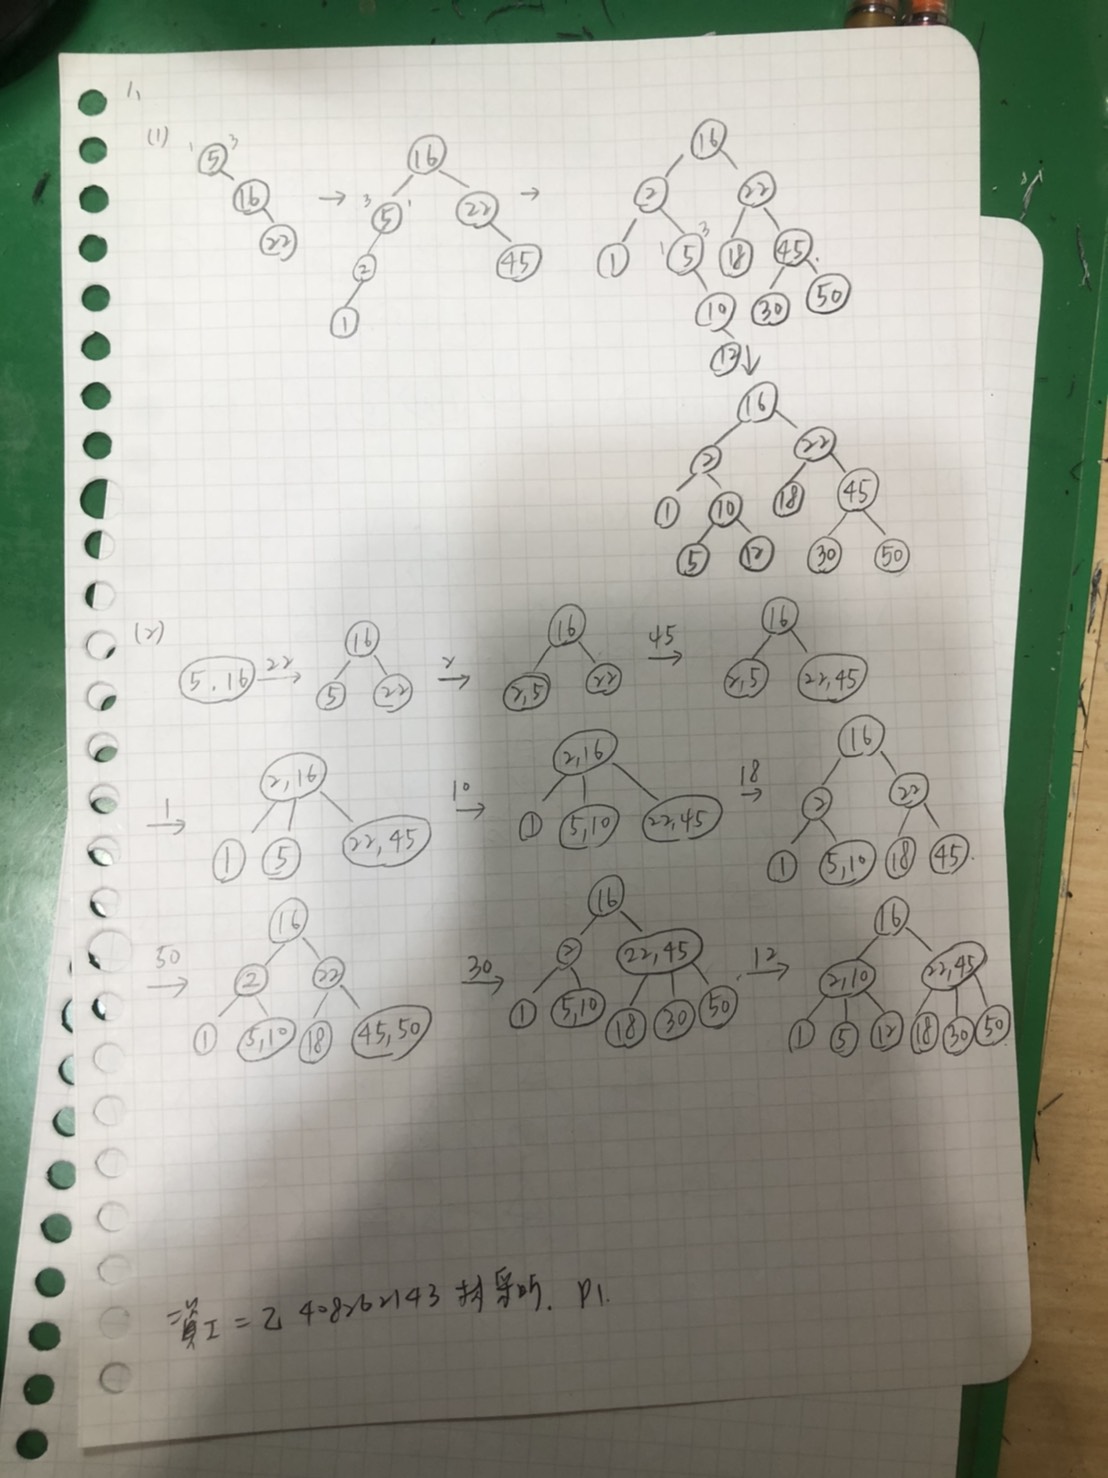 1.
(1)
1 5 3 16 22 → 16 3 5 1 22 2 45 1 → 16 2 22 1 1 5 3 18 45 10 30 50 12
↓
16 2 22 1 10 18 45 5 12 30 50
(2)
5.16 22→ 16 5 22 2→ 16 2,5 22 45→ 16 2,5 22,45
1→ 2,16 1 5 22,45 10→ 2,16 1 5,10 22,45 18→ 16 2 22 1 5,10 18 45
50→ 16 2 22 1 5,10 18 45,50 30→ 16 2 22,45 1 5,10 18 30 50 12→ 16 2,10 22,45 1 5 12 18 30 50
資工二乙 408262143 P1.